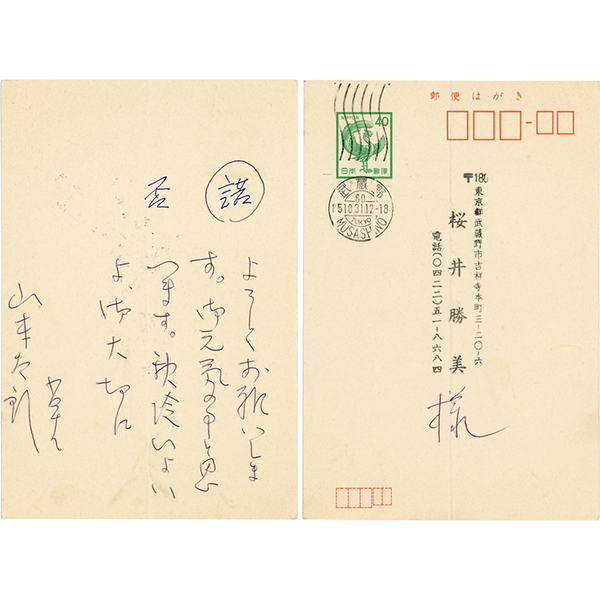 諾
否
よろしくお願いしま
す。御元気の事と思
います。秋冷いよい
よ、御大切に
山本太郎
郵便はがき
40
日本郵便
武蔵野
60
12-18
TOKYO
MUSASHINO
〒180
東京都武蔵野市吉祥寺本町三-二〇-六
桜井勝美 様
電話(〇四二二)五一-八六八四